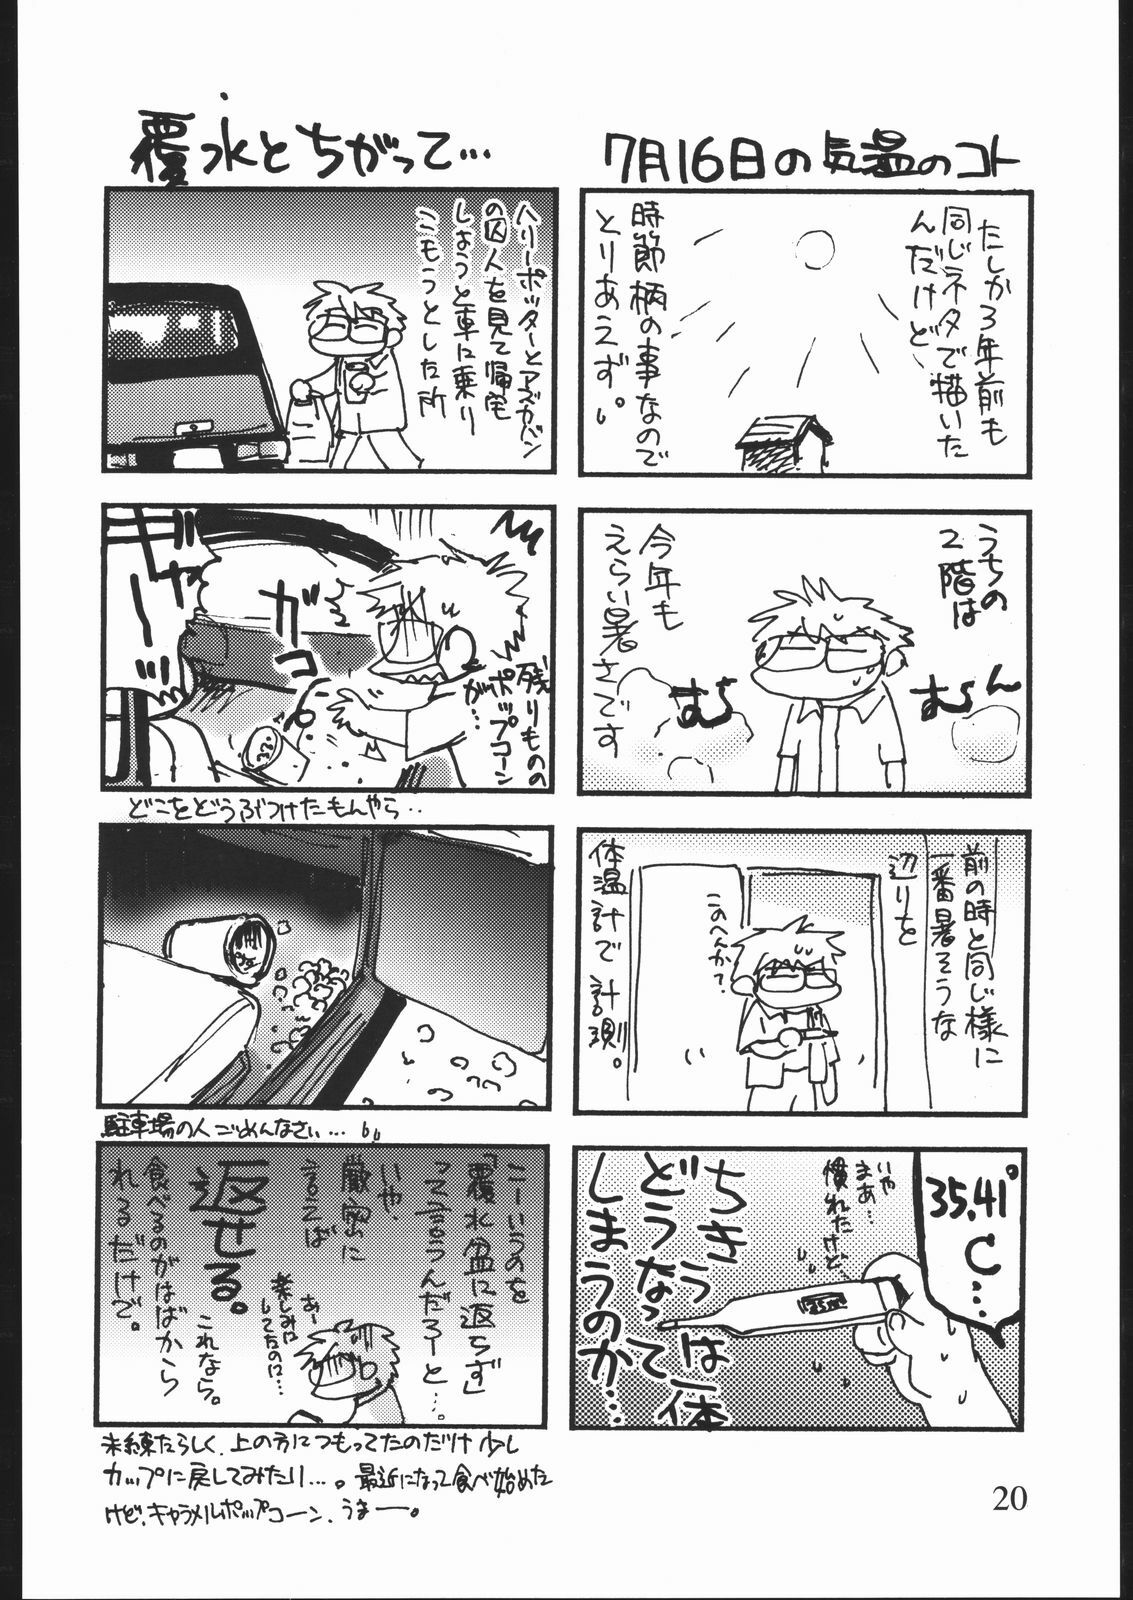 7月16日の気温のコト
たしか3年前も
同じネタで描いた
んだけど
時節柄の事なので
とりあえず。
うちの
2階は
むらん
むら
今年も
えらい暑さです
前の時と同じ様に
一番暑そうな
辺りを
このへんか?
体温計で計測。
35.41°
C…
いや
まぁ…
慣れたけど、
ちきうは一体
どうなって
しまうのか…
覆水とちがって…
ハリーポッターとアズカバン
の囚人を見て帰宅
しようと車に乗り
こもうとした所
ガコ
ギャーッ
残りものの
ポップコーン
が…
どこをどうぶつけたもんやら‥
駐車場の人ごめんなさい…
こーいうのを
「覆水盆に返らず」
って言うんだろーと…。
いや、
厳密に
言えば
返せる。
これなら。
食べるのがはばから
れるだけで。
あー
楽しみに
してたのに…
未練たらしく、上の方につもってたのだけ少し
カップに戻してみたり…。最近になって食べ始めた
けど、キャラメルポップコーン、うまー。
20